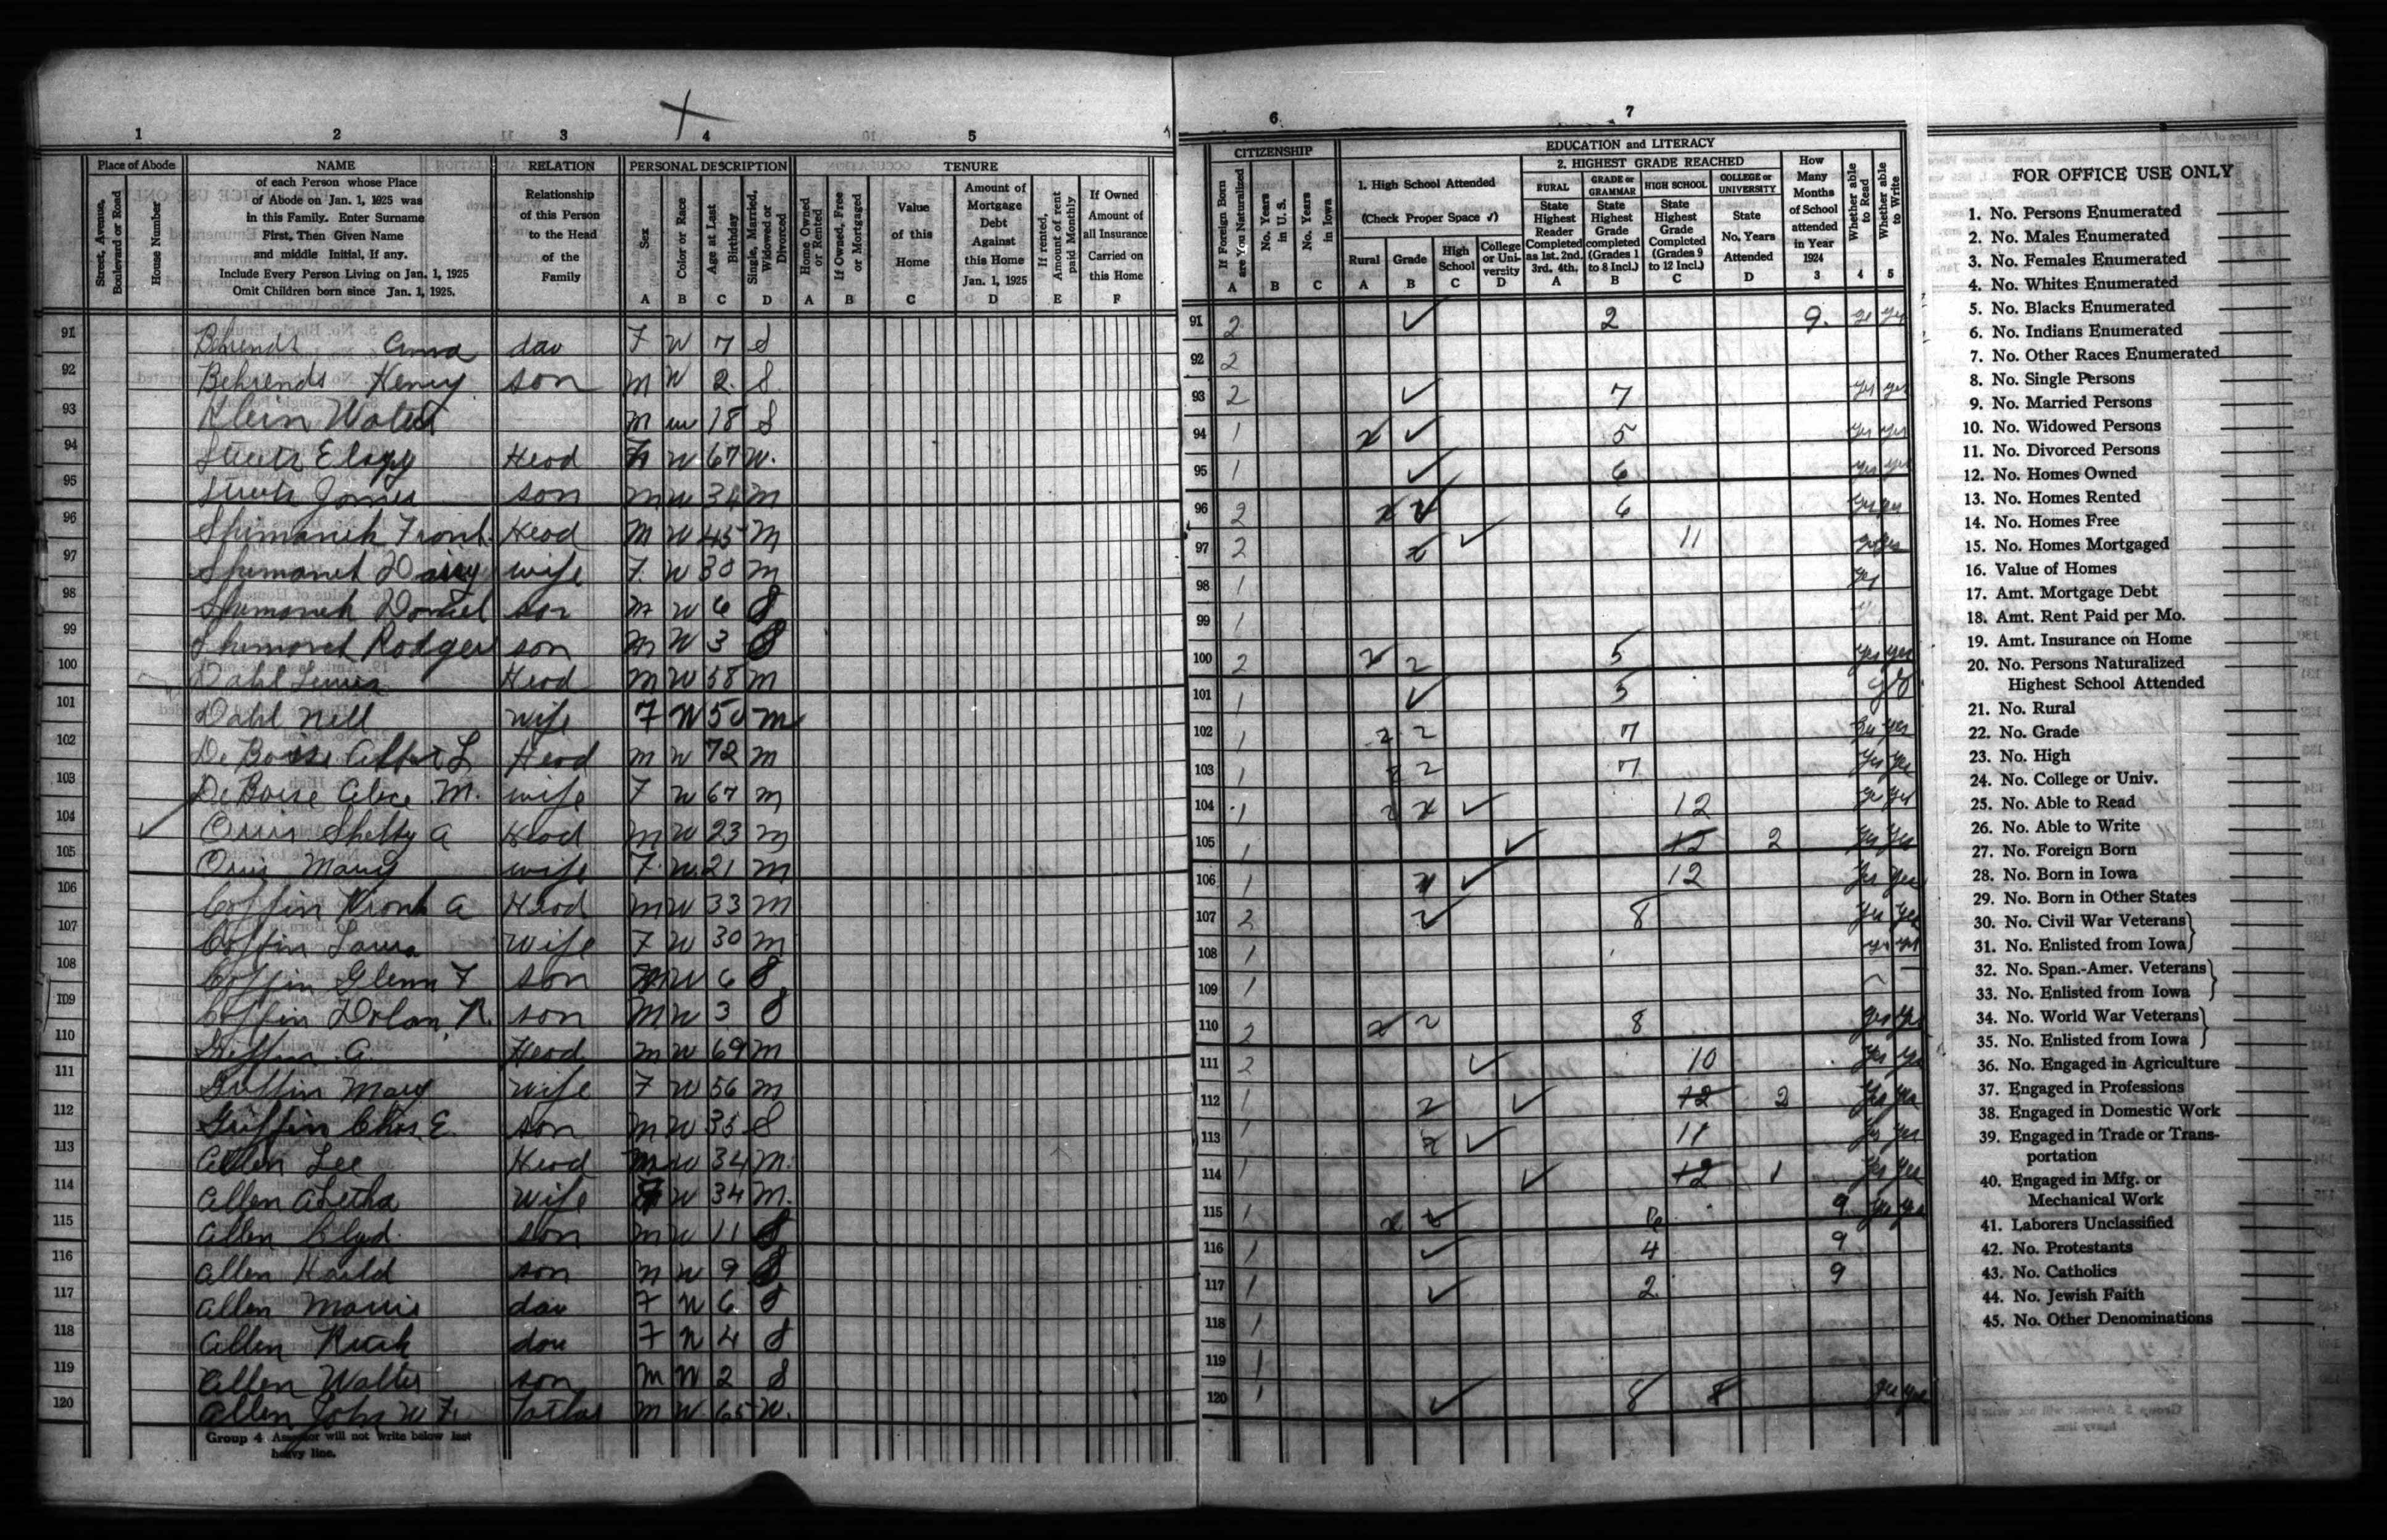 1 2 3 4 5
Place of Abode NAME RELATION PERSONAL DESCRIPTION TENURE
Street, Avenue, Boulevard or Road
House Number
of each Person whose Place
of Abode on Jan. 1, 1925 was
in this Family. Enter Surname
First, Then Given Name
and middle Initial, if any.
Include Every Person Living on Jan. 1, 1925
Omit Children born since Jan. 1, 1925.
Relationship
of this Person
to the Head
of the
Family
Sex A
Color or Race B
Age at Last Birthday C
Single, Married, Widowed or Divorced D
Home Owned or Rented A
If Owned, Free or Mortgaged B
Value of this Home C
Amount of Mortgage Debt Against this Home Jan. 1, 1925 D
If rented, Amount of rent paid Monthly E
If Owned Amount of all Insurance Carried on this Home F
91 Behrends Anna dau F W 7 S
92 Behrends Henry son M W 2 S
93 Klein Walter M W 18 S
94 Head F W 67 W.
95 James son M W 34 M
96 Shimanek Frank Head M W 45 M
97 Shimanek Daisy wife F. W 30 M
98 Shimanek Daniel son M W 6 S
99 Shimanek Rodger son M W 3 S
100 Dahl Head M W 58 M
101 Dahl Nell wife F W 50 M
102 De Boise Albert L Head M W 72 M
103 De Boise Alice M. wife F W 67 M
104 Orris Shelby A Head M W 23 M
105 Orris Mary wife F W 21 M
106 Coffin Frank A Head M W 33 M
107 Coffin Laura wife F W 30 M
108 Coffin Glenn F son M W 6 S
109 Coffin Dolan R. son M W 3 S
110 Griffin A. Head M W 69 M
111 Griffin Mary wife F W 56 M
112 Griffin Chas. E. son M W 35 S
113 Allen Lee Head M W 34 M.
114 Allen Aletha wife F W 34 M.
115 Allen son M W 11 S
116 Allen Harld son M W 9 S
117 Allen dau F W 6 S
118 Allen Ruth dau F W 4 S
119 Allen Walter son M W 2 S
120 Allen John W F. Father M W 65 W.
Group 4 Assessor will not write below last
heavy line.
6 7
CITIZENSHIP EDUCATION and LITERACY
If Foreign Born are You Naturalized A
No. Years in U. S. B
No. Years in Iowa C
1. High School Attended
(Check Proper Space √)
Rural A
Grade B
High School C
College or University D
2. HIGHEST GRADE REACHED
RURAL State Highest Reader Completed as 1st. 2nd. 3rd. 4th. A
GRADE or GRAMMAR State Highest Grade completed (Grades 1 to 8 Incl.) B
HIGH SCHOOL State Highest Grade Completed (Grades 9 to 12 Incl.) C
COLLEGE or UNIVERSITY State No. Years Attended D
How Many Months of School attended in Year 1924 3
Whether able to Read 4
Whether able to Write 5
91 2 ✓ 2 9. yes yes
92 2
93 2 ✓ 7 yes yes
94 1 x ✓ 5 yes yes
95 1 ✓ 6 yes yes
96 2 x ✓ 6 yes yes
97 2 x ✓ 11 yes yes
98 1 yes
99 1
100 2 x 2 5 yes yes
101 1 ✓ 5
102 1 2 2 7 yes yes
103 1 2 2 7 yes yes
104 1 2 x ✓ 12 yes yes
105 1 ✓ 12 2 yes yes
106 1 x ✓ 12 yes yes
107 2 ✓ 8 yes yes
108 1 yes yes
109 1
110 2 x 2 8 yes yes
111 2 ✓ 10 yes yes
112 1 x ✓ 12 2 yes yes
113 1 x ✓ 11 yes yes
114 1 ✓ 12 1 yes yes
115 1 x ✓ 6 9 yes yes
116 1 ✓ 4 9
117 1 ✓ 2 9
118 1
119 1
120 1 ✓ 8 8 yes yes
FOR OFFICE USE ONLY
1. No. Persons Enumerated
2. No. Males Enumerated
3. No. Females Enumerated
4. No. Whites Enumerated
5. No. Blacks Enumerated
6. No. Indians Enumerated
7. No. Other Races Enumerated
8. No. Single Persons
9. No. Married Persons
10. No. Widowed Persons
11. No. Divorced Persons
12. No. Homes Owned
13. No. Homes Rented
14. No. Homes Free
15. No. Homes Mortgaged
16. Value of Homes
17. Amt. Mortgage Debt
18. Amt. Rent Paid per Mo.
19. Amt. Insurance on Home
20. No. Persons Naturalized
Highest School Attended
21. No. Rural
22. No. Grade
23. No. High
24. No. College or Univ.
25. No. Able to Read
26. No. Able to Write
27. No. Foreign Born
28. No. Born in Iowa
29. No. Born in Other States
30. No. Civil War Veterans
31. No. Enlisted from Iowa
32. No. Span.-Amer. Veterans
33. No. Enlisted from Iowa
34. No. World War Veterans
35. No. Enlisted from Iowa
36. No. Engaged in Agriculture
37. Engaged in Professions
38. Engaged in Domestic Work
39. Engaged in Trade or Trans-
portation
40. Engaged in Mfg. or
Mechanical Work
41. Laborers Unclassified
42. No. Protestants
43. No. Catholics
44. No. Jewish Faith
45. No. Other Denominations